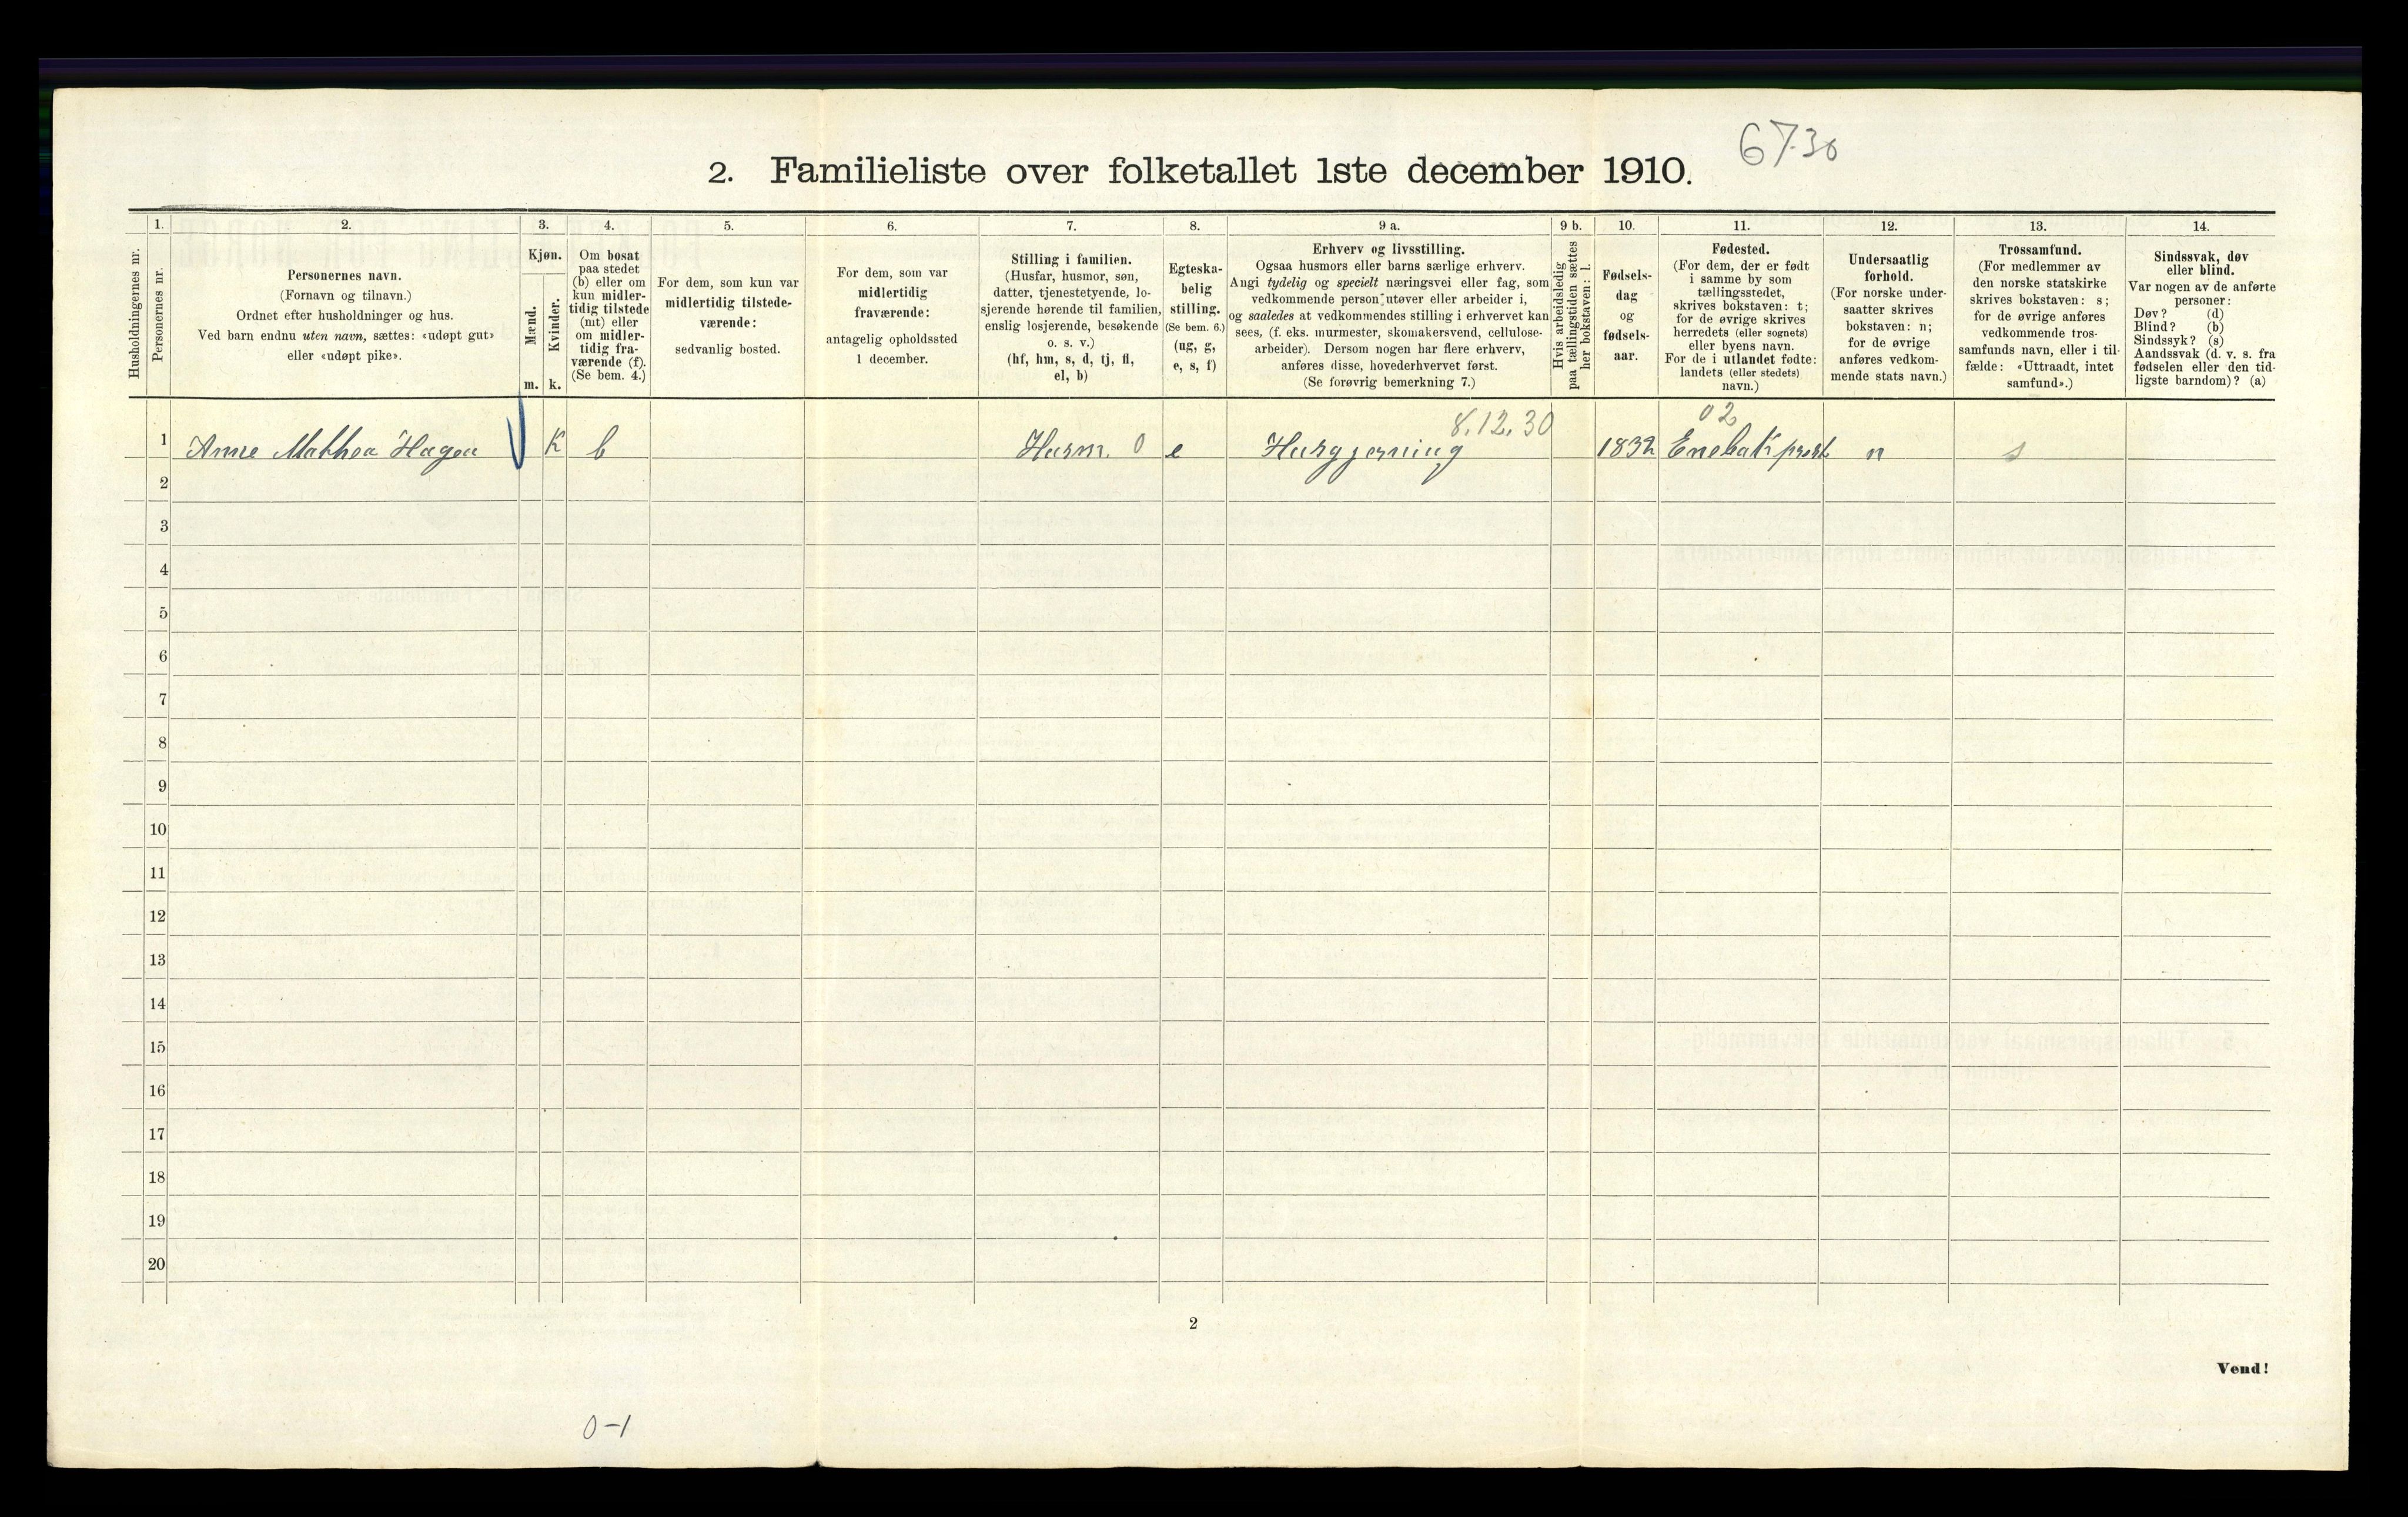 67-30
2. Familieliste over folketallet 1ste december 1910.
Husholdningernes nr.
1.
Personernes nr.
2.
Personernes navn.
(Fornavn og tilnavn.)
Ordnet efter husholdninger og hus.
Ved barn endnu uten navn, sættes: «udøpt gut»
eller «udøpt pike».
3.
Kjøn.
Mænd.
m.
Kvinder.
k.
4.
Om bosat
paa stedet
(b) eller om
kun midler-
tidig tilstede
(mt) eller
om midler-
tidig fra-
værende (f).
(Se bem. 4.)
5.
For dem, som kun var
midlertidig tilstede-
værende:
sedvanlig bosted.
6.
For dem, som var
midlertidig
fraværende:
antagelig opholdssted
1 december.
7.
Stilling i familien.
(Husfar, husmor, søn,
datter, tjenestetyende, lo-
sjerende hørende til familien,
enslig losjerende, besøkende
o. s. v.)
(hf, hm, s, d, tj, fl,
el, b)
8.
Egteska-
belig
stilling.
(Se bem. 6.)
(ug, g,
e, s, f)
9 a.
Erhverv og livsstilling.
Ogsaa husmors eller barns særlige erhverv.
Angi tydelig og specielt næringsvei eller fag, som
vedkommende person utøver eller arbeider i,
og saaledes at vedkommendes stilling i erhvervet kan
sees, (f. eks. murmester, skomakersvend, cellulose-
arbeider). Dersom nogen har flere erhverv,
anføres disse, hovederhvervet først.
(Se forøvrig bemerkning 7.)
9 b.
Hvis arbeidsledig
paa tællingstiden sættes
her bokstaven: l.
10.
Fødsels-
dag
og
fødsels-
aar.
11.
Fødested.
(For dem, der er født
i samme by som
tællingsstedet,
skrives bokstaven: t;
for de øvrige skrives
herredets (eller sognets)
eller byens navn.
For de i utlandet fødte:
landets (eller stedets)
navn.)
12.
Undersaatlig
forhold.
(For norske under-
saatter skrives
bokstaven: n;
for de øvrige
anføres vedkom-
mende stats navn.)
13.
Trossamfund.
(For medlemmer av
den norske statskirke
skrives bokstaven: s;
for de øvrige anføres
vedkommende tros-
samfunds navn, eller i til-
fælde: «Uttraadt, intet
samfund».)
14.
Sindssvak, døv
eller blind.
Var nogen av de anførte
personer:
Døv? (d)
Blind? (b)
Sindssyk? (s)
Aandssvak (d. v. s. fra
fødselen eller den tid-
ligste barndom)? (a)
8.12.30 02
1 Anne Mathea Hagen K b Husm. 0 e Husgjerning 1832 Enebak prest n s
2
3
4
5
6
7
8
9
10
11
12
13
14
15
16
17
18
19
20
2
Vend!
0-1